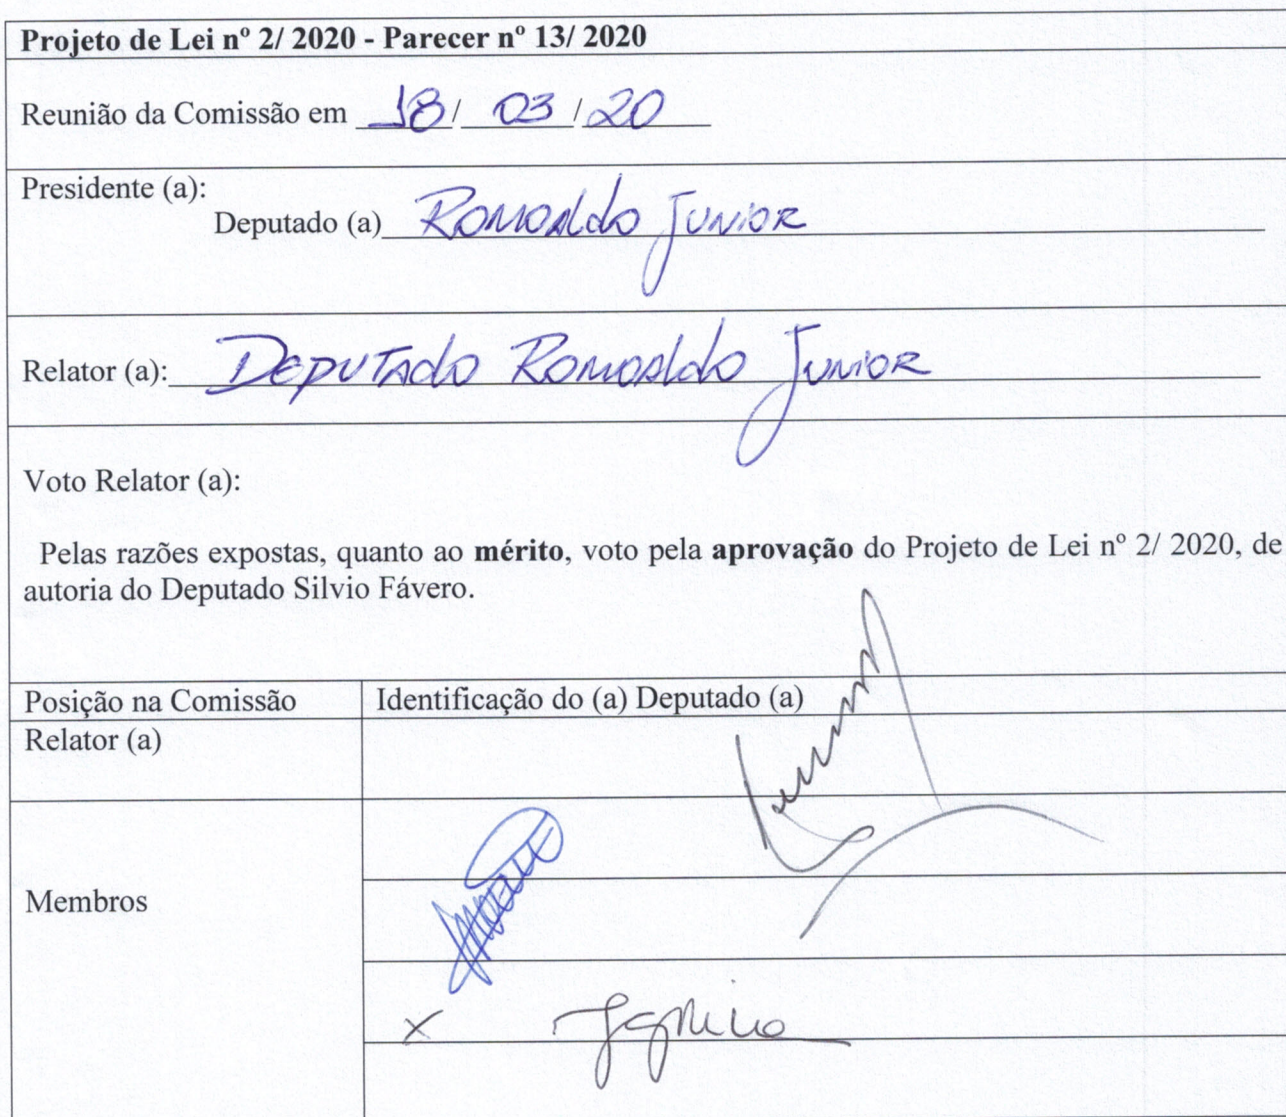 Projeto de Lei nº 2/ 2020 - Parecer nº 13/ 2020
Reunião da Comissão em 18/ 03 /20
Presidente (a):
Deputado (a) Romoaldo Junior
Relator (a): Deputado Romoaldo Junior
Voto Relator (a):
Pelas razões expostas, quanto ao mérito, voto pela aprovação do Projeto de Lei nº 2/ 2020, de
autoria do Deputado Silvio Fávero.
Posição na Comissão Identificação do (a) Deputado (a)
Relator (a)
Membros
x